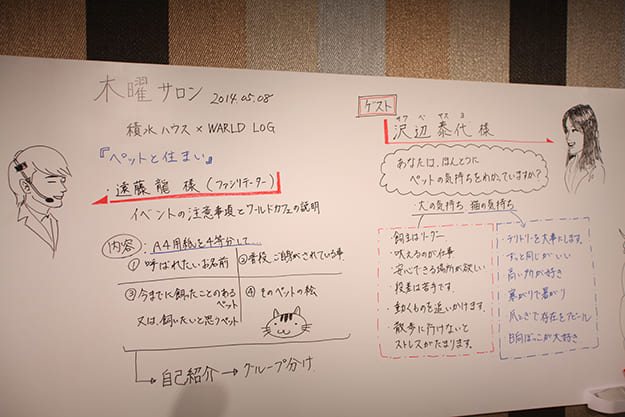 木曜サロン 2014.05.08
積水ハウス × WARLD LOG
『ペットと住まい』
・遠藤 龍 様 (ファシリテーター)
イベントの注意事項とワールドカフェの説明
内容:A4用紙を4等分して…
① 呼ばれたいお名前
② 普段、ご自身がされている事
③ 今までに飼ったことのある
ペット
又は、飼いたいと思うペット
④ そのペットの絵
→自己紹介→グループ分け
ゲスト
サワ ベ ヤス ヨ
沢辺 泰代 様
あなたは、ほんとうに
ペットの気持ちをわかっていますか?
・犬の気持ち 猫の気持ち
・飼主はリーダー
・吠えるのが仕事
・安心できる場所が欲しい
・投薬は苦手です。
・動くものを追いかけます。
・散歩に行けないと
ストレスがたまります。
・テリトリーを大事にします。
・ずっと同じがいい
・高い所が好き
・寒がりで暑がり
・爪とぎで存在をアピール
・日向ぼっこが大好き